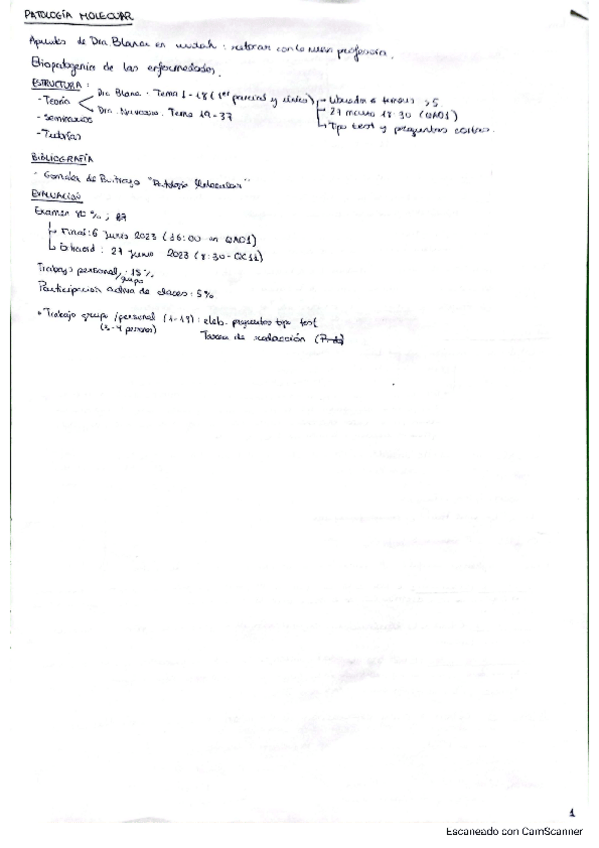 PATOLOGÍA MOLECULAR
Apuntes de Dra Blanca en : con la nueva profesora.
Etiopatogenia de las enfermedades.
ESTRUCTURA:
- Teoría
Dra. Blanca. Tema 1-18 (1er parcial y único)
Dra. Navarro. Tema 19-37
Liberador e temas ≥ 5
27 marzo 18:30 (QA01)
Tipo test y preguntas cortas.
- Seminarios
- Tutorías
BIBLIOGRAFÍA
- González de Buitrago "Patología Molecular"
EVALUACIÓN
Examen %;
Final: 6 Junio 2023 (16:00 en QA01)
: 27 Junio 2023 (8:30-QC11)
Trabajo personal/grupo: 15%
Participación activa de clases: 5%
• Trabajo grupo/personal (1-18): elab. preguntas tipo test
(3-4 personas)
Tarea de redacción
1
Escaneado con CamScanner